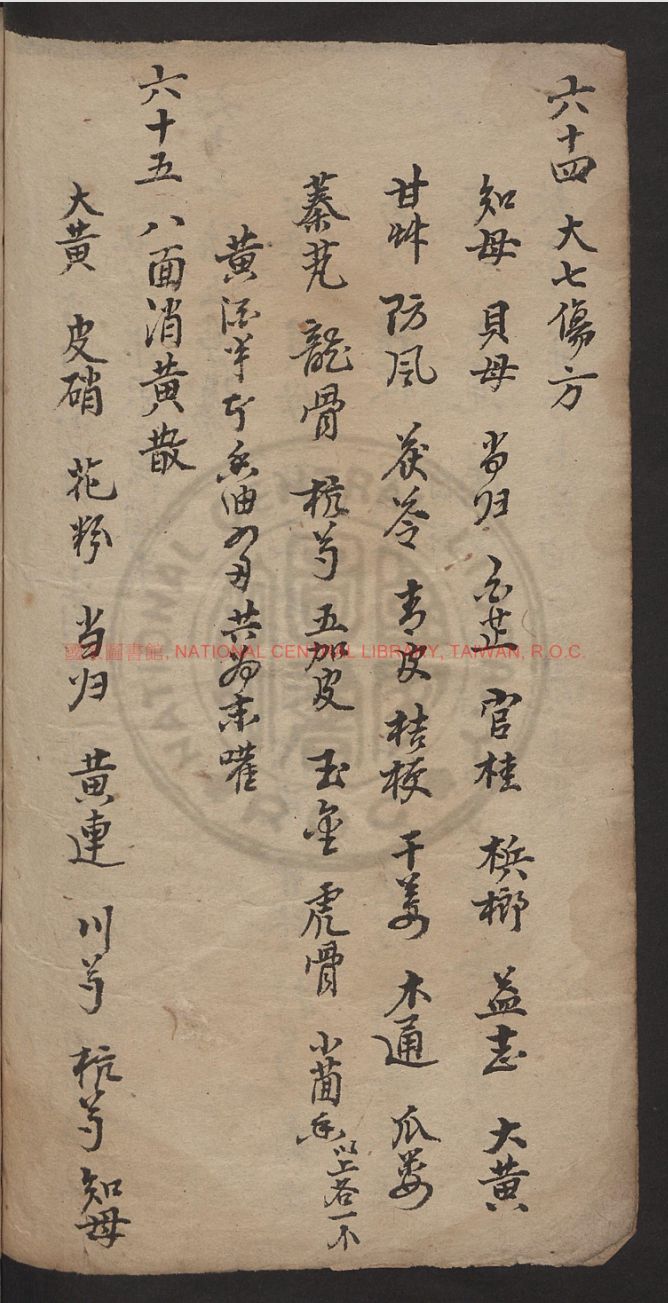 六十四 大七傷方
知母 貝母 当归 白芷 官桂 梹榔 益志 大黄
甘艸 防风 茯苓 青皮 桔梗 干姜 木通 瓜蒌
蓁艽 龍骨 杭芍 五加皮 玉金 虎骨 小茴香 以上各一
黄酒半斤香油四两共為末嚾
六十五 八面消黄散
大黄 皮硝 花粉 当归 黄連 川芎 杭芍 知母
國家圖書館, NATIONAL CENTRAL LIBRARY, TAIWAN, R.O.C.